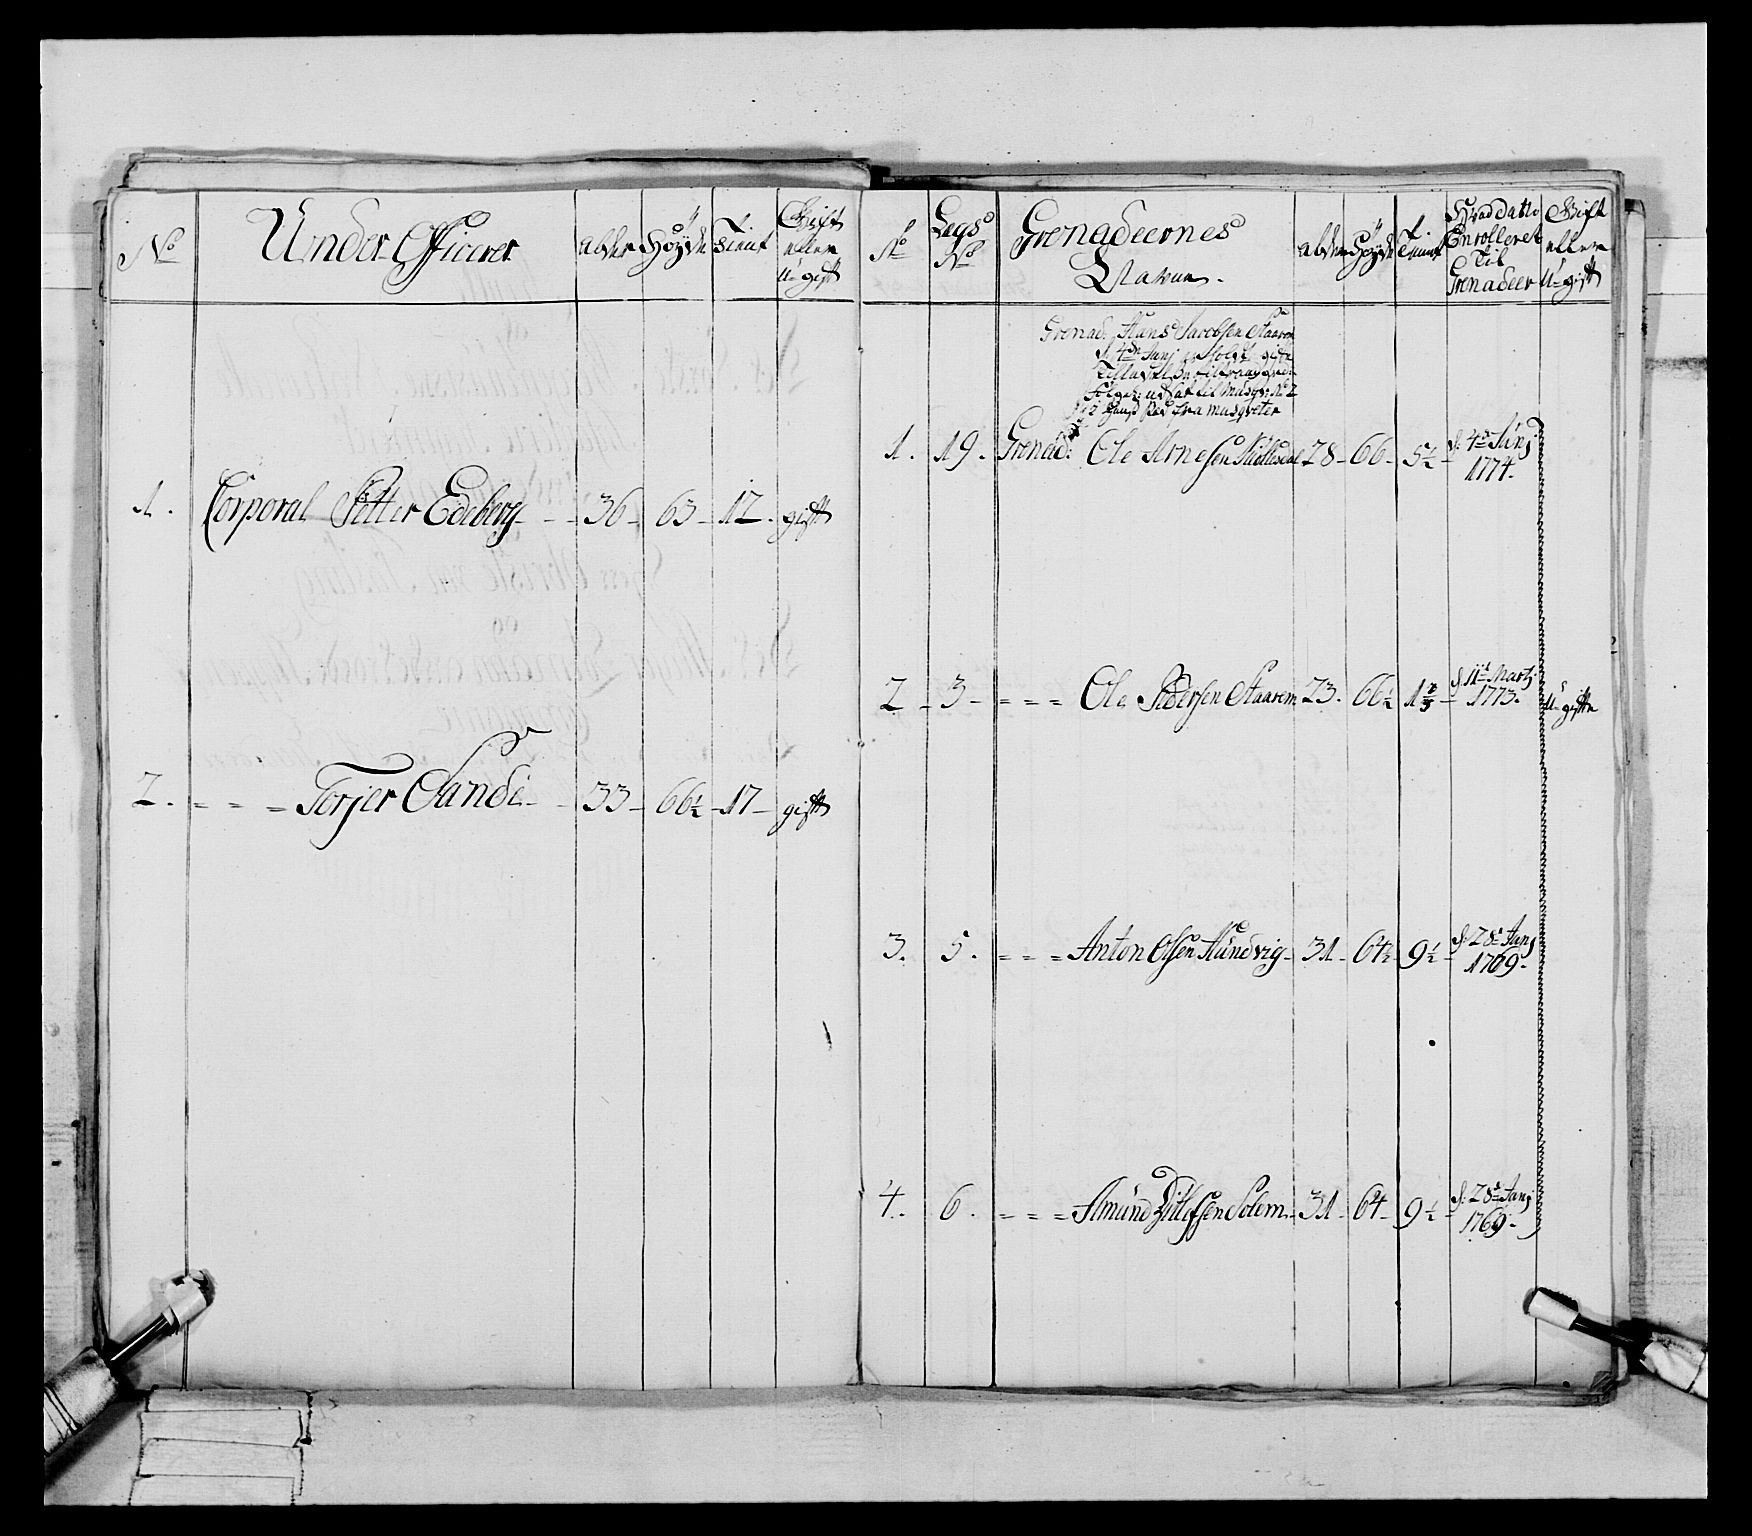 No
Under Officerer
alder
Høyde
Tient
Gift
eller
U-gift
1. Corporal Petter Edeberg - 36 - 63 - 12 - gift
2. = = = Torjer Sande - 33 - 66½ - 17 - gift
No
Legs
No
Grenadeernes
Navne.
alder
Høyde
Tient
Hvad Datto
Enrolleret
Til
Grenadeer
Gift
eller
U-gift
Grenad: Hans Jacobsen Staarem
d: 4de Junj
udsat til Musqv: No 2
fra Musqveter
1. 19. Grenad: Ole Arnesen 28 - 66 - 5½ - d: 4de Junj
1774.
2 - 3 - = = = Ole Pedersen Staarem 23. 66½ 1⅔ - d: 11te Martj
1773. U-gift
3. 5. = = = Anton Olsen Hundvig - 31 - 64½ 9½ - d: 28de Junj
1769.
4. 6. = = = Amund Ditlefsen Solem - 31 - 64 - 9½ - d: 28de Junj
1769.